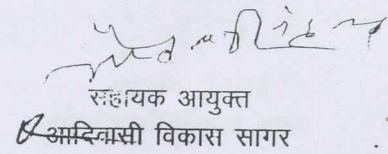 सहायक आयुक्त
आदिवासी विकास सागर